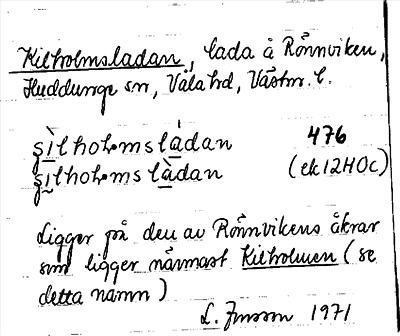 Kilholmsladan, lada å Rönnviken,
Huddunge sn, Våla hd, Västm. l.
şìlhoḷmslá̱dan 476
şi̱lhoḷmslà̱dan (ek 12H0c)
Ligger på den av Rönnvikens åkrar
som ligger närmast Kilholmen (se
detta namn)
L. Jonsson 1971